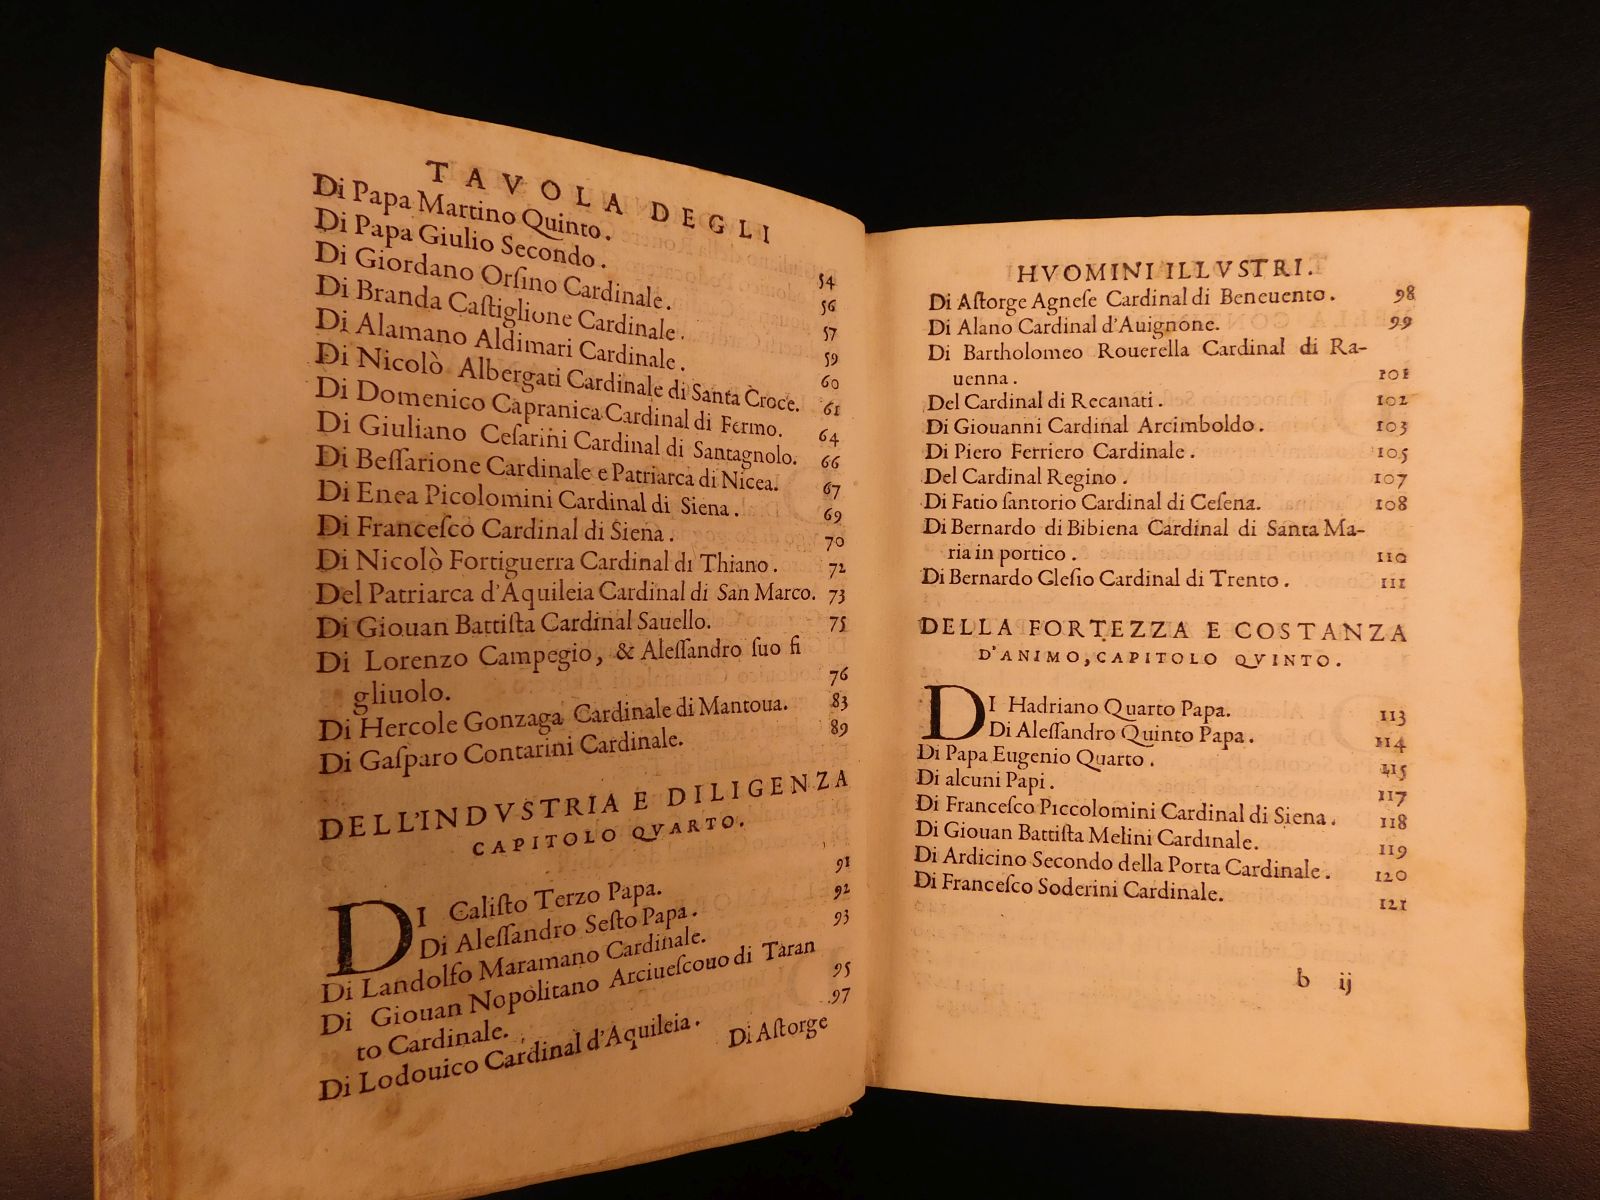 TAVOLA DEGLI
Di Papa Martino Quinto. 54
Di Papa Giulio Secondo. 56
Di Giordano Orſino Cardinale. 57
Di Branda Caſtiglione Cardinale. 59
Di Alamano Aldimari Cardinale. 60
Di Nicolò Albergati Cardinale di Santa Croce. 61
Di Domenico Capranica Cardinal di Fermo. 64
Di Giuliano Ceſarini Cardinal di Santagnolo. 66
Di Beſſarione Cardinale e Patriarca di Nicea. 67
Di Enea Picolomini Cardinal di Siena. 69
Di Franceſco Cardinal di Siena. 70
Di Nicolò Fortiguerra Cardinal di Thiano. 72
Del Patriarca d'Aquileia Cardinal di San Marco. 73
Di Giouan Battiſta Cardinal Sauello. 75
Di Lorenzo Campegio, & Aleſſandro ſuo fi
gliuolo. 76
Di Hercole Gonzaga Cardinale di Mantoua. 83
Di Gaſparo Contarini Cardinale. 89
DELL'INDVSTRIA E DILIGENZA
CAPITOLO QVARTO.
DI Caliſto Terzo Papa. 91
Di Aleſſandro Seſto Papa. 92
Di Landolfo Maramano Cardinale. 93
Di Giouan Nopolitano Arciueſcouo di Taran
to Cardinale. 95
Di Lodouico Cardinal d'Aquileia. 97
Di Aſtorge
HVOMINI ILLVSTRI.
Di Aſtorge Agneſe Cardinal di Beneuento. 98
Di Alano Cardinal d'Auignone. 99
Di Bartholomeo Rouerella Cardinal di Ra-
uenna. 101
Del Cardinal di Recanati. 102
Di Giouanni Cardinal Arcimboldo. 103
Di Piero Ferriero Cardinale. 105
Del Cardinal Regino. 107
Di Fatio ſantorio Cardinal di Ceſena. 108
Di Bernardo di Bibiena Cardinal di Santa Ma-
ria in portico. 110
Di Bernardo Gleſio Cardinal di Trento. 111
DELLA FORTEZZA E COSTANZA
D'ANIMO, CAPITOLO QVINTO.
DI Hadriano Quarto Papa. 113
Di Aleſſandro Quinto Papa. 114
Di Papa Eugenio Quarto. 115
Di alcuni Papi. 117
Di Franceſco Piccolomini Cardinal di Siena. 118
Di Giouan Battiſta Melini Cardinale. 119
Di Ardicino Secondo della Porta Cardinale. 120
Di Franceſco Soderini Cardinale. 121
b ij